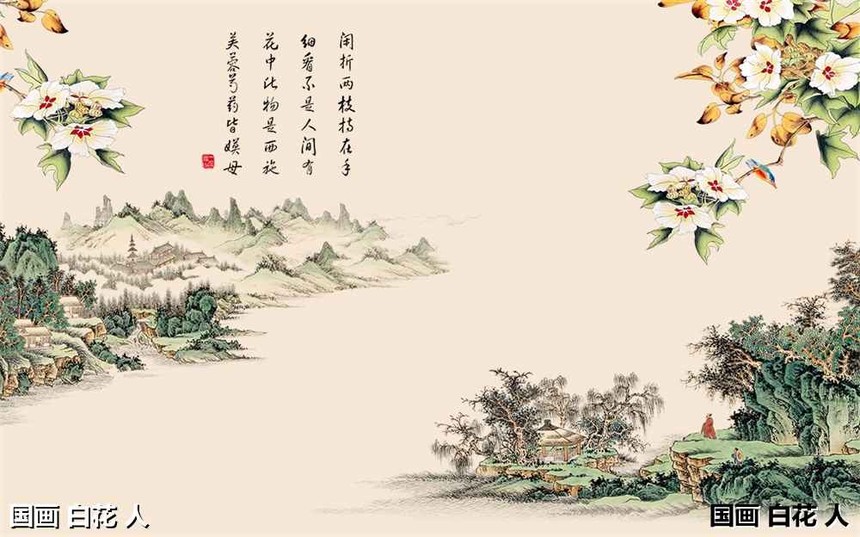 闲折两枝持在手
细看不是人间有
花中此物是西施
芙蓉芍药皆嫫母
国画 白花 人
国画 白花 人